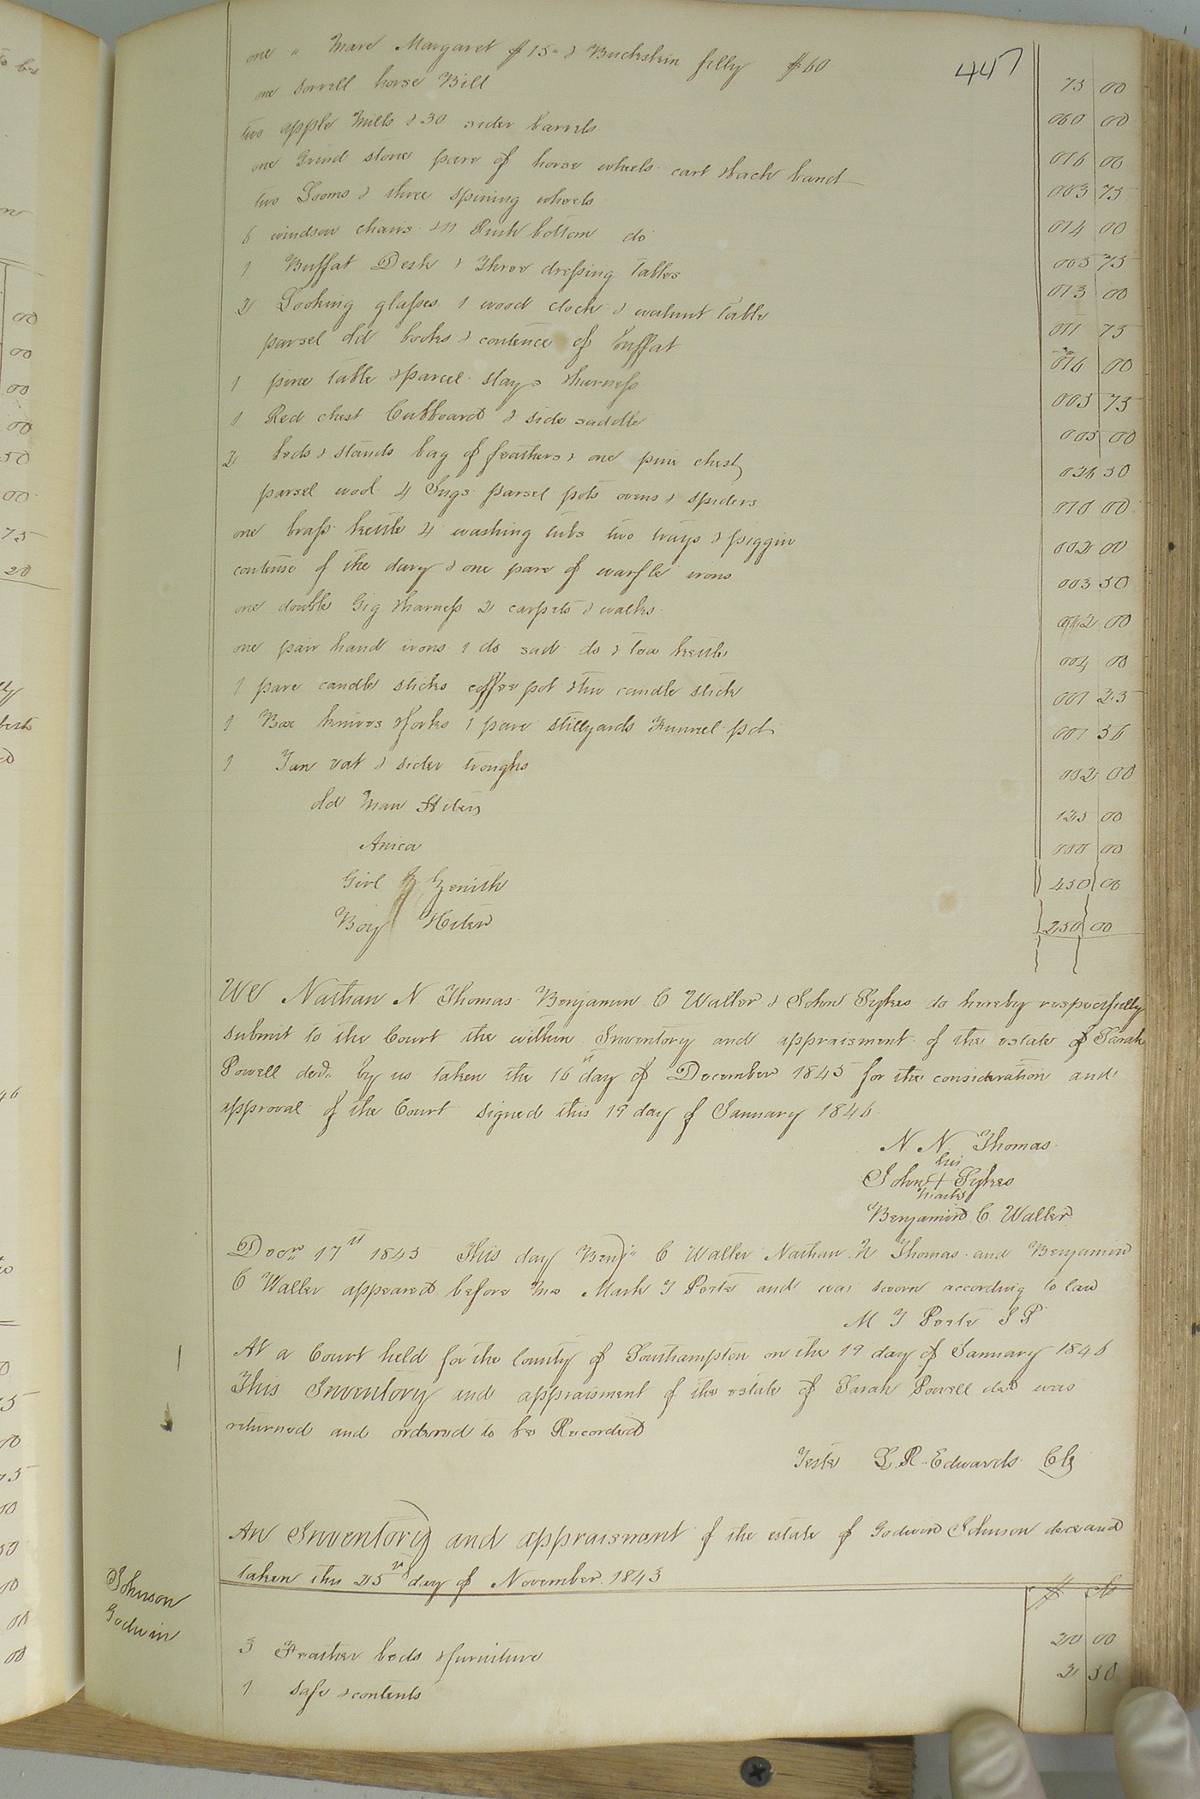 447
one " Mare Margaret $15 - & Buckskin filly $60 75 00
one sorrell horse Bill 060 00
two apple Mills & 30 sider barrels 016 00
one Grind stone pare of horse wheels cart & back band 003 75
two Looms & three spining wheels 014 00
6 windsor chairs & 11 Rush bottom do 005 75
1 Buffat Desk & Three dressing tables 013 00
2 Looking glasses 1 wood clock & walnut table 011 75
parsel old books & contence of buffat 014 00
1 pine table & parcel slays & harness 003 75
1 Red chest Cubboard & side saddle 005 00
2 beds & stands bag of feathers & one pine chest 50
parsel wool 4 Jugs parsel pots ovens & spiders 010 00
one brass kettle 4 washing tubs two trays & piggin 002 00
contense of the dary & one pare of warfle irons 003 50
one double Gig & harness 2 carpets & walks 00
one pair hand irons 1 do sad do & tea kettle 004 00
1 pare candle sticks coffee pot & tin candle stick 001 25
1 Box knives & forks 1 pare stillyards Funnel pd 001 56
1 Tan vat & sider troughs 002 00
old Man 125 00
Anica 00
Girl Zenith 450 00
Boy 250 00
We Nathan N Thomas Benjamin C Waller & John Sykes do hereby respectfully
submit to the Court the within Inventory and appraisment of the estate of Sarah
Powell decd. by us taken the 16th day of December 1845 for the consideration and
approval of the Court signed this 19 day of January 1846
N. N. Thomas
his
John + Sykes
mark
Benjamin C. Waller
Decr. 17th 1845 This day Benjn C Waller Nathan N Thomas and Benjamin
C Waller appeared before me Mark T Porter and was sworn according to law
M T Porter J P
At a Court held for the County of Southampton on the 19 day of January 1846
This Inventory and appraisment of the estate of Sarah Powell decd was
returned and ordered to be Recorded
Teste L. R. Edwards Clk
An Inventory and appraisment of the estate of Godwin Johnson deceased
taken this 25th day of November 1845
Johnson
Godwin
$ cts
3 Feather beds & furniture 20 00
1 Safe & contents 2 50